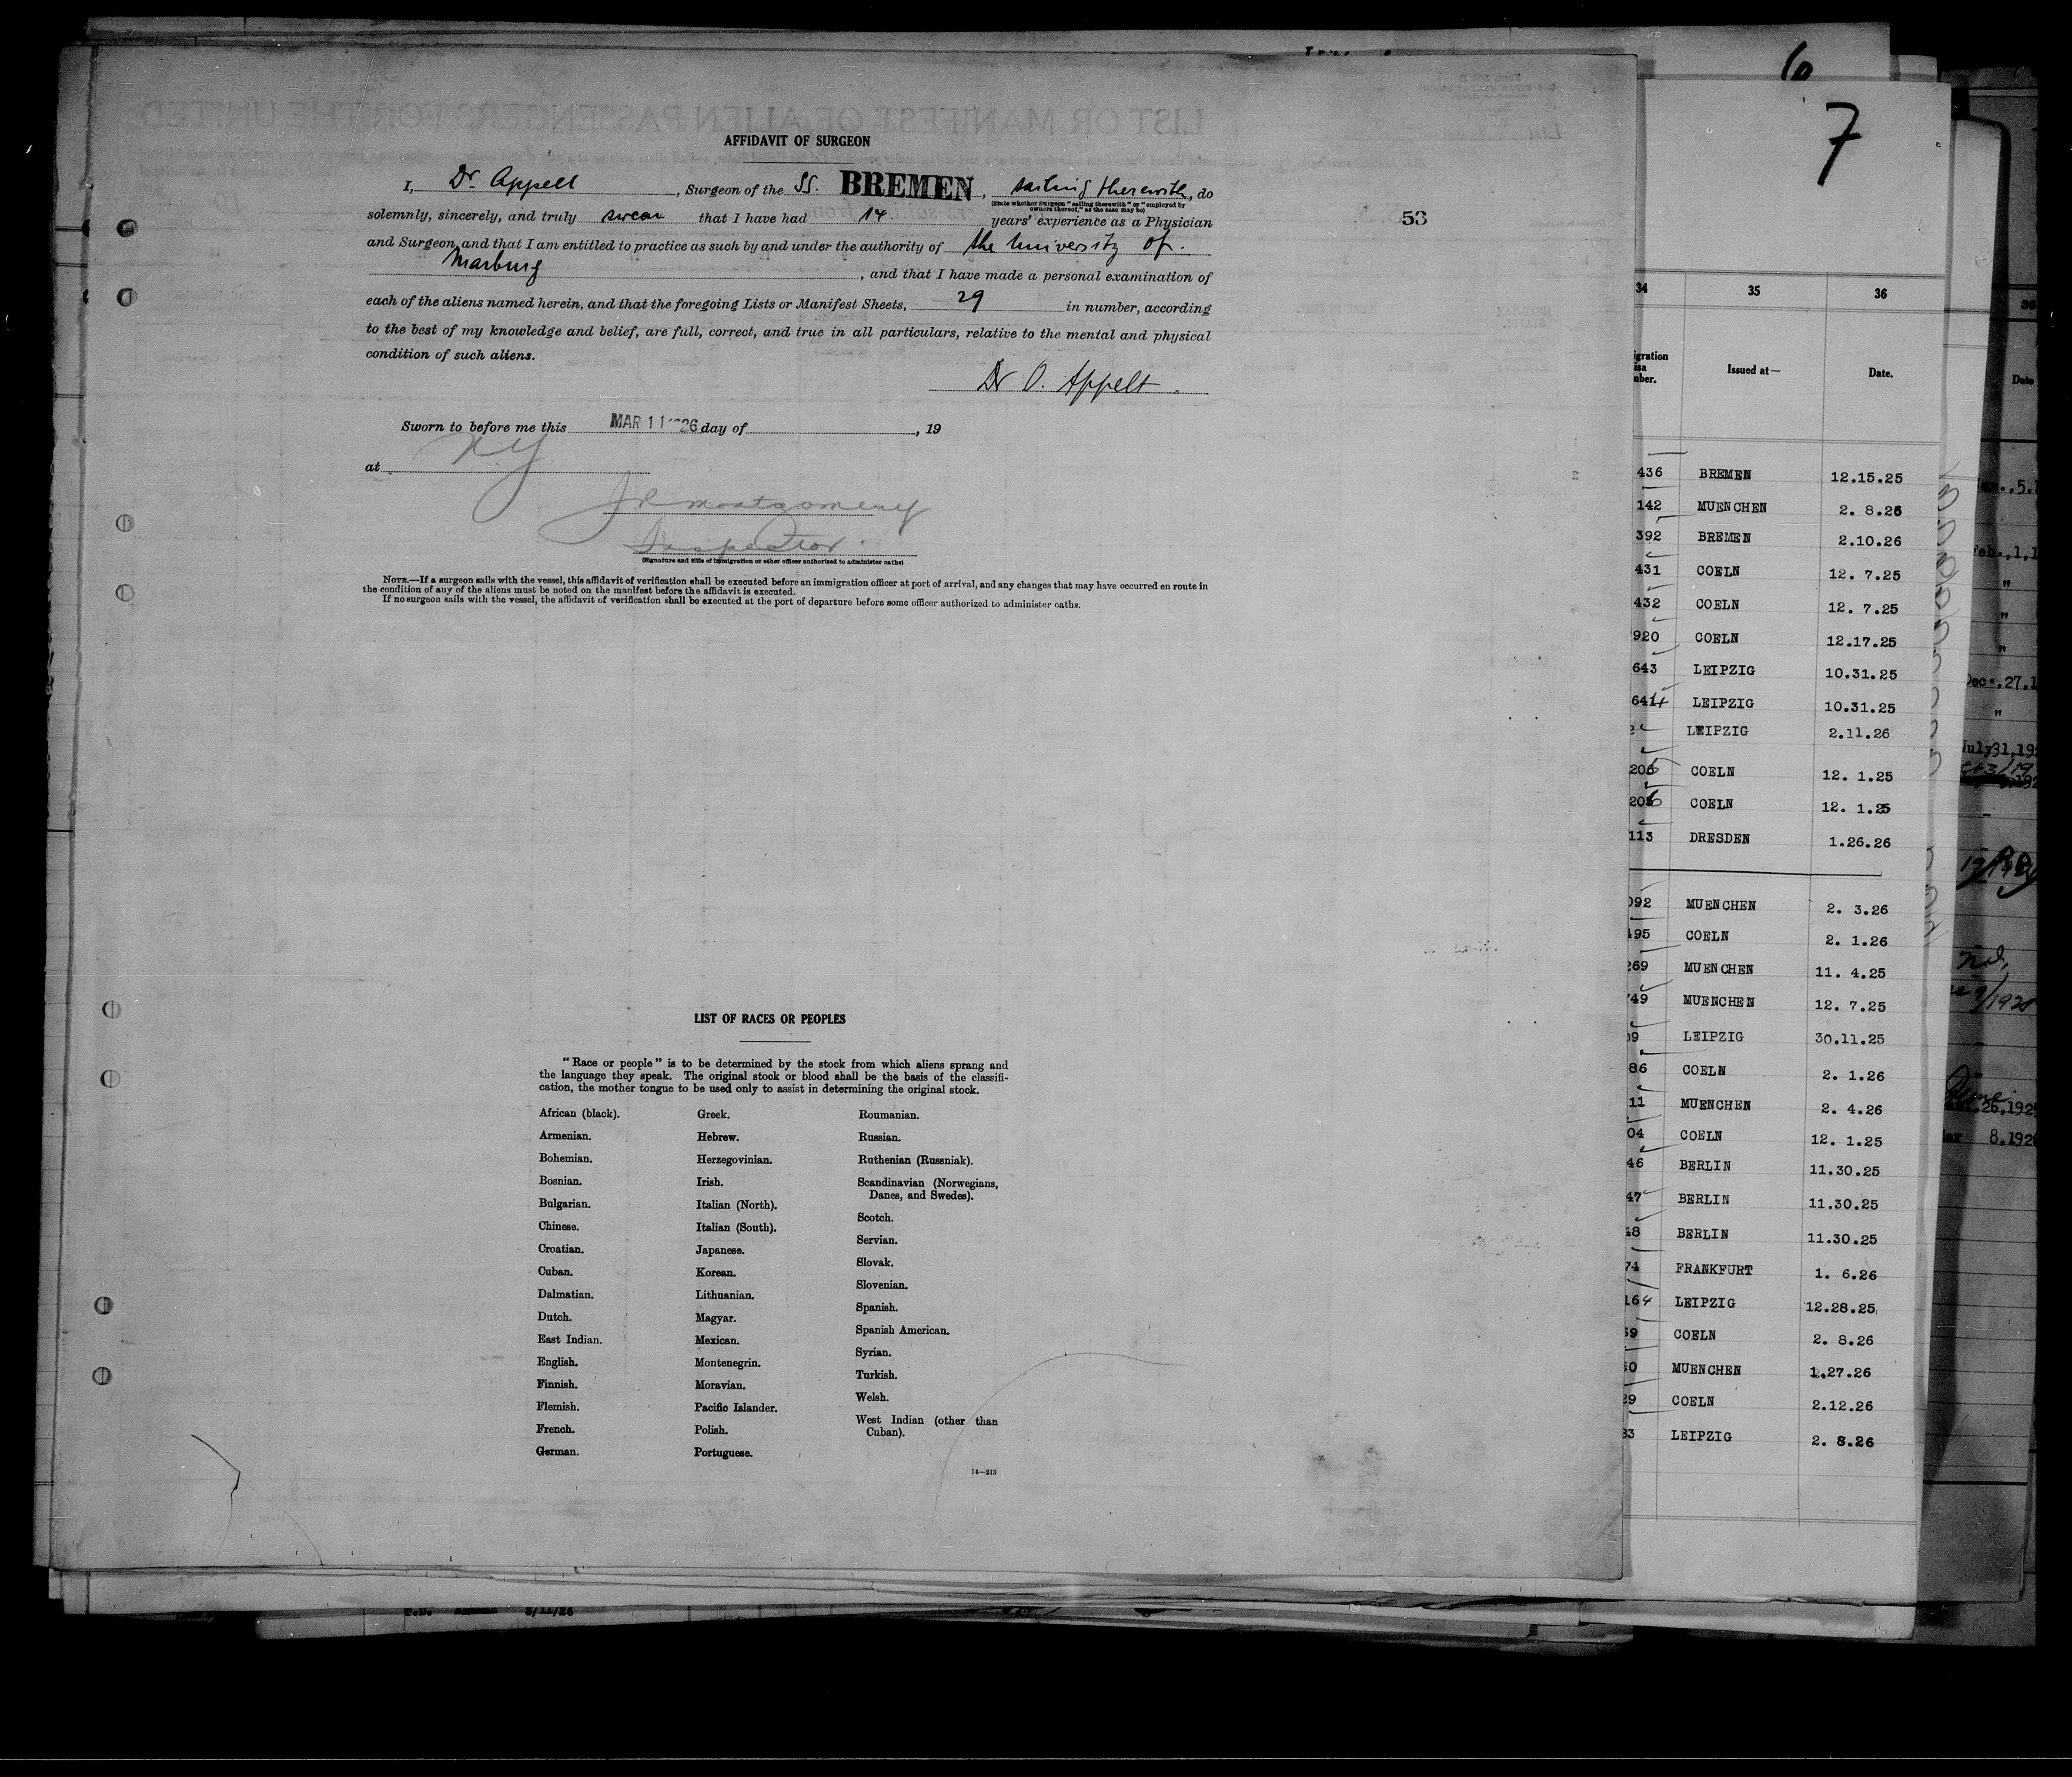 6
7
AFFIDAVIT OF SURGEON
I, Dr. Appelt, Surgeon of the SS. BREMEN, sailing therewith, do
(State whether Surgeon "sailing therewith" or "employed by
owners thereof," as the case may be)
solemnly, sincerely, and truly swear that I have had 14. years' experience as a Physician
53
and Surgeon, and that I am entitled to practice as such by and under the authority of the University of.
Marburg, and that I have made a personal examination of
each of the aliens named herein, and that the foregoing Lists or Manifest Sheets, 29 in number, according
to the best of my knowledge and belief, are full, correct, and true in all particulars, relative to the mental and physical
condition of such aliens.
Dr O. Appelt
Sworn to before me this MAR 11 1926 day of , 19
at NY
JR Montgomery
Inspector
(Signature and title of immigration or other officer authorized to administer oaths)
NOTE.—If a surgeon sails with the vessel, this affidavit of verification shall be executed before an immigration officer at port of arrival, and any changes that may have occurred en route in
the condition of any of the aliens must be noted on the manifest before the affidavit is executed.
If no surgeon sails with the vessel, the affidavit of verification shall be executed at the port of departure before some officer authorized to administer oaths.
LIST OF RACES OR PEOPLES
"Race or people" is to be determined by the stock from which aliens sprang and
the language they speak. The original stock or blood shall be the basis of the classifi-
cation, the mother tongue to be used only to assist in determining the original stock.
African (black).
Armenian.
Bohemian.
Bosnian.
Bulgarian.
Chinese.
Croatian.
Cuban.
Dalmatian.
Dutch.
East Indian.
English.
Finnish.
Flemish.
French.
German.
Greek.
Hebrew.
Herzegovinian.
Irish.
Italian (North).
Italian (South).
Japanese.
Korean.
Lithuanian.
Magyar.
Mexican.
Montenegrin.
Moravian.
Pacific Islander.
Polish.
Portuguese.
Roumanian.
Russian.
Ruthenian (Russniak).
Scandinavian (Norwegians,
Danes, and Swedes).
Scotch.
Servian.
Slovak.
Slovenian.
Spanish.
Spanish American.
Syrian.
Turkish.
Welsh.
West Indian (other than
Cuban).
14—213
34 35 36
Issued at— Date.
436 BREMEN 12.15.25
142 MUENCHEN 2. 8.26
392 BREMEN 2.10.26
431 COELN 12. 7.25
432 COELN 12. 7.25
920 COELN 12.17.25
643 LEIPZIG 10.31.25
644 LEIPZIG 10.31.25
2 LEIPZIG 2.11.26
205 COELN 12. 1.25
206 COELN 12. 1.25
113 DRESDEN 1.26.26
092 MUENCHEN 2. 3.26
195 COELN 2. 1.26
269 MUENCHEN 11. 4.25
749 MUENCHEN 12. 7.25
09 LEIPZIG 30.11.25
86 COELN 2. 1.26
11 MUENCHEN 2. 4.26
04 COELN 12. 1.25
46 BERLIN 11.30.25
47 BERLIN 11.30.25
48 BERLIN 11.30.25
74 FRANKFURT 1. 6.26
164 LEIPZIG 12.28.25
59 COELN 2. 8.26
60 MUENCHEN 1.27.26
29 COELN 2.12.26
83 LEIPZIG 2. 8.26